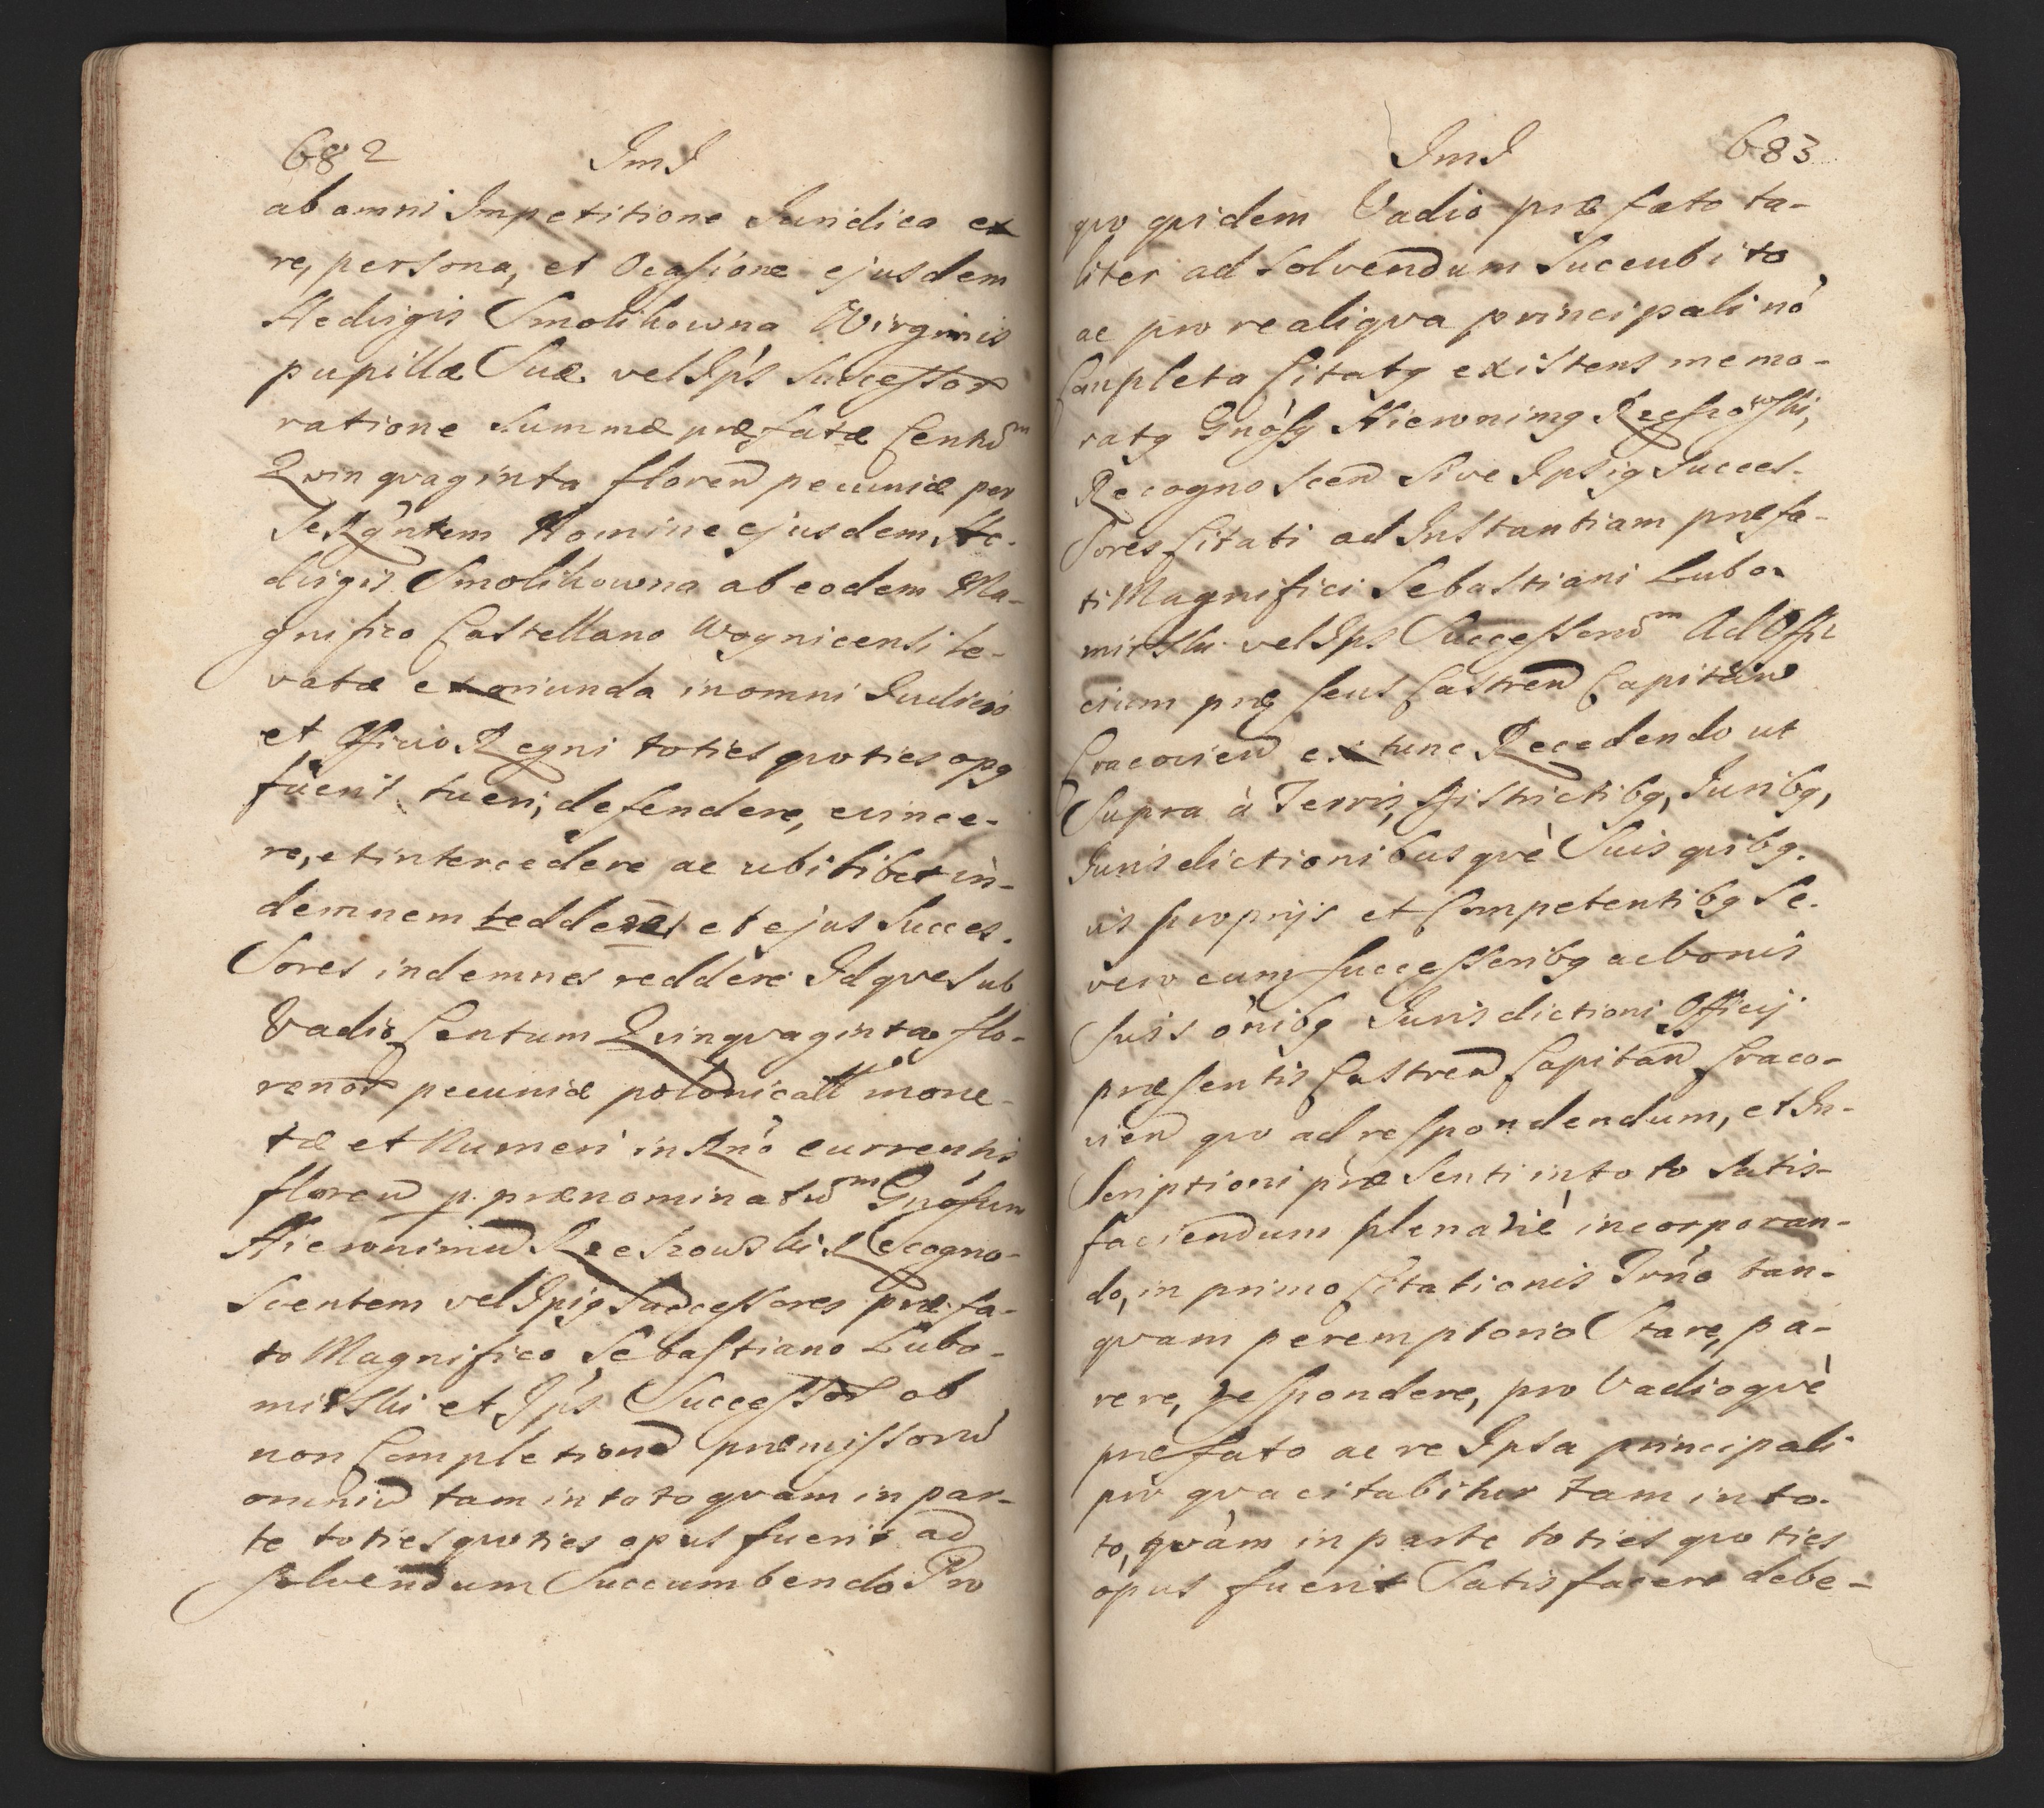 682 ImI
ab omni Impetitione Juridica ex
re, persona, et Ocasione ejusdem
Hedvigis Smolikowna Virginis
pupillæ Suæ vel Ips Successor
ratione Summæ præfatæ Centũm
Qvinqvaginta floren pecuniæ per
se Rgntem Nomine ejusdem He-
dvigis Smolikowna ab eodem Ma-
gnifico Castellano Woynicensi le-
vatæ exoriunda in omni Judicio
et Officio Regni toties qvoties opg
fuerit tueri, defendere, evince-
re, et intercedere ac ubilibet in-
demnem reddere, et ejus Succes-
Sores indemnes reddere Idqve sub
Vadio Centum Qvinqvaginta flo-
renor pecuniæ polonicall mone-
tæ et Numeri in Rno currentis
floren p. prænominatum Gnosum
Hieronimum Rzeszowski Recogno-
Scentem vel Ipig Successores præfa-
to Magnifico Sebastiano Lubo-
mirski et Ips Successor ob
non Completione præmissorũ
omniũ tam in toto qvam in par-
te toties qvoties opus fuerit ad
solvendum Succumbendo Pro
ImI 683
qvo qvidem Vadio præfato ta-
liter ad solvendum Succubito
ac pro re aliqva principali nó
Completa Citatg existens memo-
ratg Gnósg Hieronimg Rzeszowski,
Recognoscen sive Ipsig Succes-
Sores Citati ad Instantiam præfa-
ti Magnifici Sebastiani Lubo-
mirski vel Ips Successorum Ad Offi
cium præsens Castren Capitan
Cracovien ex tunc Recedendo ut
Supra à Terris, Districtibg, Juribg,
Jurisdictionibusqvè Suis qvibg-
vis proprijs et Competentibg Se-
vero cum successoribg ac bonis
Suis ónibg Jurisdictioni Officij
præsentis Castren Capitan Craco-
vien qvo ad respondendum, et In-
scriptioni præsenti in toto satis-
faciendum plenariè incorporan-
do, in primo Citationis Trńo tan-
qvam peremptorio Stare, pa-
rere, respondere, pro Vadioqvè
præfato ac re Ipsa principali
pro qva citabitur tam in to-
to, qvàm in parte toties qvoties
opus fuerit Satisfacere debe-